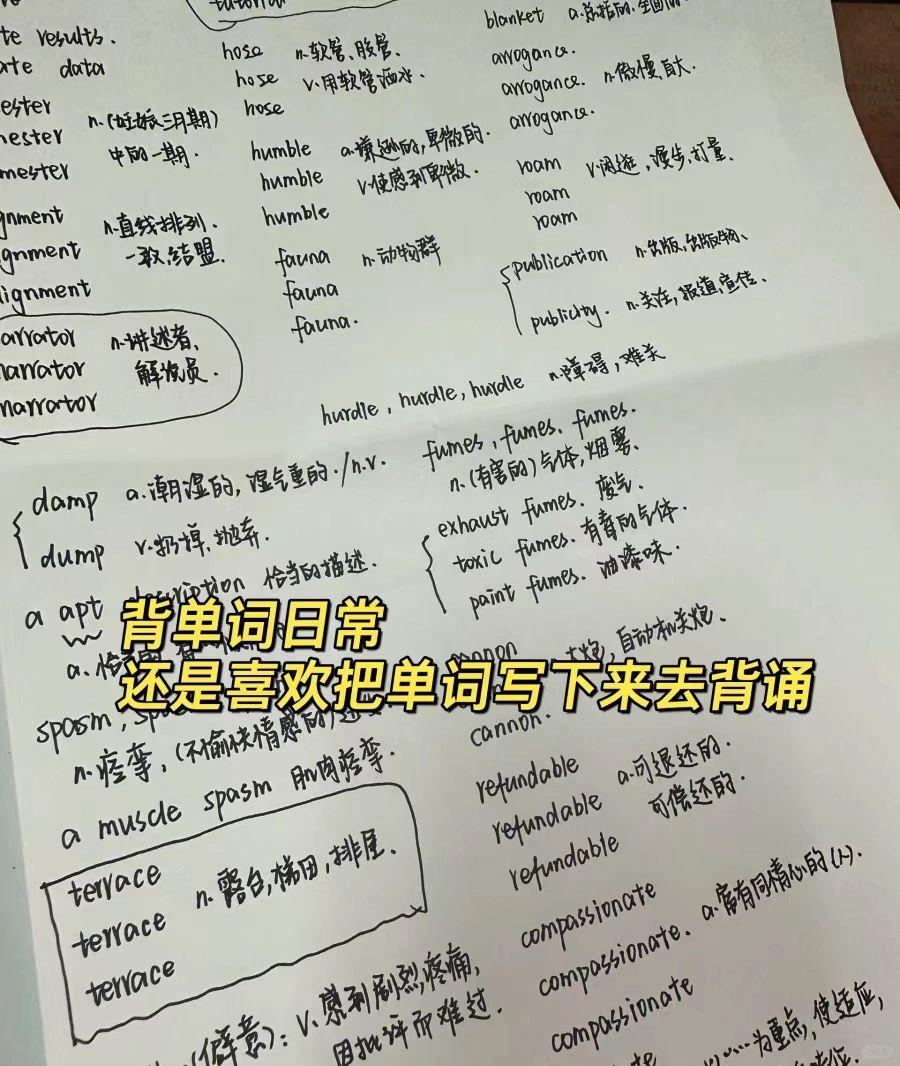 te results.
ate data
ester
nester n.(妊娠三月期)
mester 中的一期.
gnment n.直线排列.
gnment 一致,结盟.
lignment
arrator n.讲述者、
narrator 解说员.
narrator
tutorial
hose n.软管、胶管.
hose v.用软管洒水.
hose
humble a.谦逊的,卑微的.
humble v.使感到卑微.
humble
fauna n.动物群
fauna
fauna.
blanket a.总括的.全面的
arrogance.
arrogance. n.傲慢自大.
arrogance.
roam v.闲逛,漫步,打量.
roam
roam
publication n.出版,出版物、
publicity. n.关注,报道,宣传、
hurdle, hurdle, hurdle n.障碍,难关
damp a.潮湿的,湿气重的./n.v.
dump v.扔掉,抛弃.
a apt description 恰当的描述.
a.恰当的
背单词日常
还是喜欢把单词写下来去背诵
spasm,
n.痉挛,(不愉快情感的)
a muscle spasm 肌肉痉挛.
terrace
terrace n.露台,梯田,排屋.
terrace
(僻意): v.感到剧烈疼痛,
因批评而难过.
fumes, fumes, fumes.
n.(有害的)气体,烟雾、
exhaust fumes. 废气.
toxic fumes. 有毒的气体.
paint fumes. 油漆味.
cannon 大炮,自动机关炮.
cannon.
refundable
refundable a.可退还的.
refundable 可偿还的.
compassionate
compassionate. a.富有同情心的(人).
compassionate
……为重点,使适应,